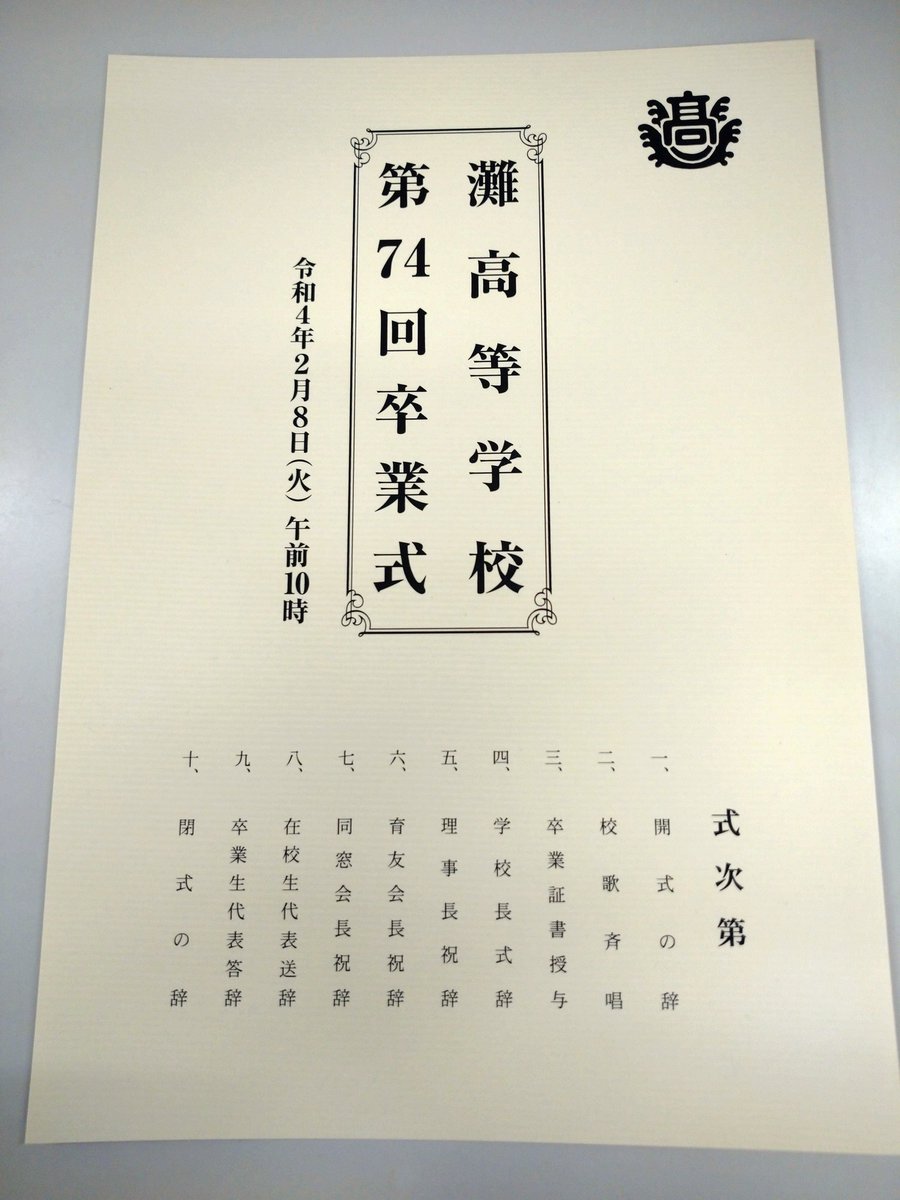 髙
灘高等学校
第74回卒業式
令和4年2月8日(火)午前10時
式次第
一、開式の辞
二、校歌斉唱
三、卒業証書授与
四、学校長式辞
五、理事長祝辞
六、育友会長祝辞
七、同窓会長祝辞
八、在校生代表送辞
九、卒業生代表答辞
十、閉式の辞